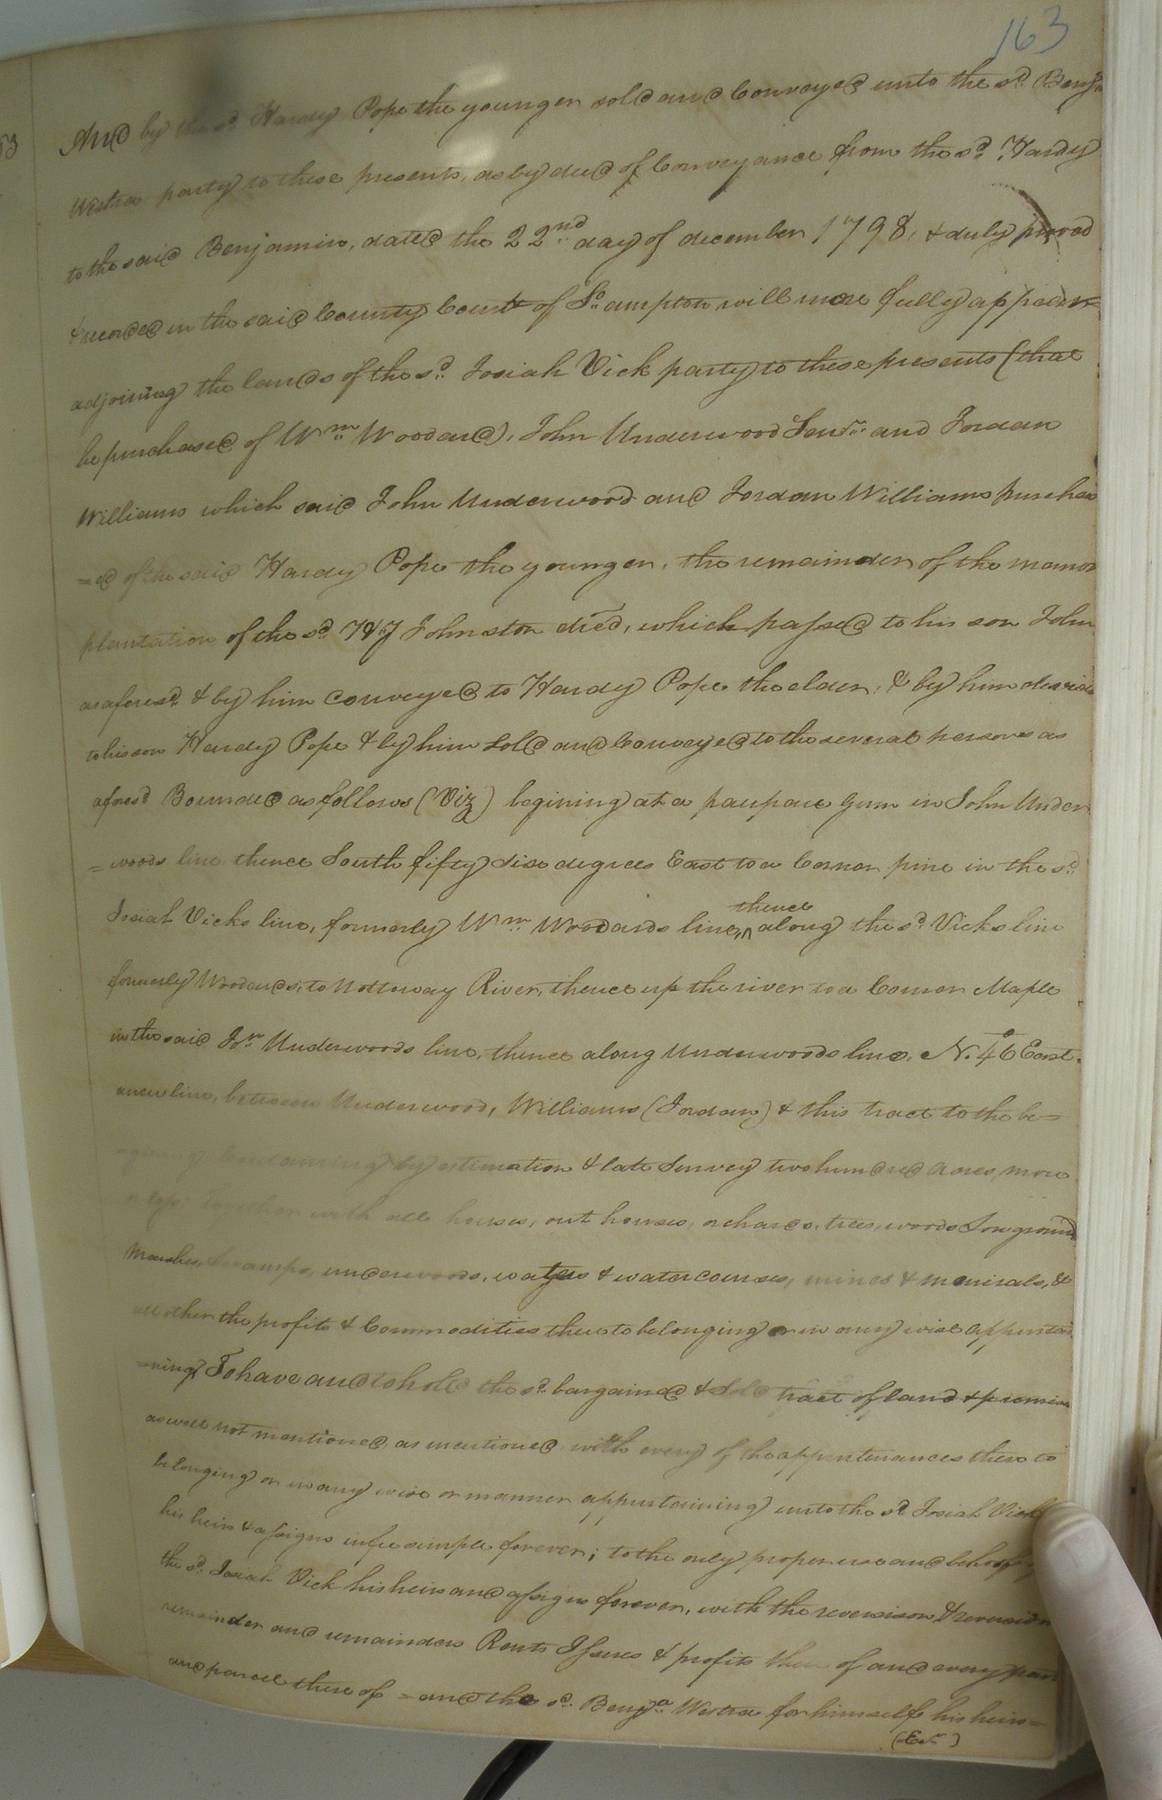 163
And by the sd. Hardy Pope the younger sold and Conveyed unto the sd. Benja
Westra party to these presents, as by deed of Conveyance from the sd. Hardy
to the said Benjamin, dated the 22nd day of december 1798, & duly proved
& recorded in the said County Court of So.ampton will more fully appear
adjoining the lands of the sd. Josiah Vick party to these presents (that
he purchased of Wm. Woodard), John Underwood Senr. and Jordan
Williams which said John Underwood and Jordan Williams purchas
=ed of the said Hardy Pope the younger, the remainder of the manor
plantation of the sd. Johnston died, which passed to his son John
as aforesd. & by him conveyed to Hardy Pope the elder, & by him devised
to his son Hardy Pope & by him sold and Conveyed to the several persons as
aforesd Bounded as follows (Viz) begining at a paupau Gum in John Under
=woods line thence South fifty six degrees East to a Corner pine in the sd.
Josiah Vicks line, formerly Wm. Woodards line, thence along the sd. Vicks line
formerly Woodards, to Nottoway River, thence up the river to a Corner Maple
in the said Jn. Underwoods line, thence along Underwoods line, N. 46° East.
a new line, between Underwood, Williams (Jordan) & this tract to the be=
=gining Containing by estimation & late Survey two hundred acres, more
or less: Together with all houses, out houses, orchards, trees, woods Low grounds
Marshes, Swamps, underwoods, waters & watercourses, mines & minirals, &
all other the profits & Commodities thereto belonging or in any wise appertai
=ning, To have and to hold the sd. bargained & sold tract of land & premises
as well not mentioned, as mentioned with every of the appurtenances there to
belonging or in any wise or manner appurtaining unto the sd. Josiah Vick
his heirs & assigns in fee simple forever; to the only proper use and behoof
the sd. Josiah Vick his heirs and assigns forever, with the reversion & reversions
remainder and remainders Rents Issues & profits there of and every part
and parcel there of = and the sd. Benja. Westra for himself his heirs =